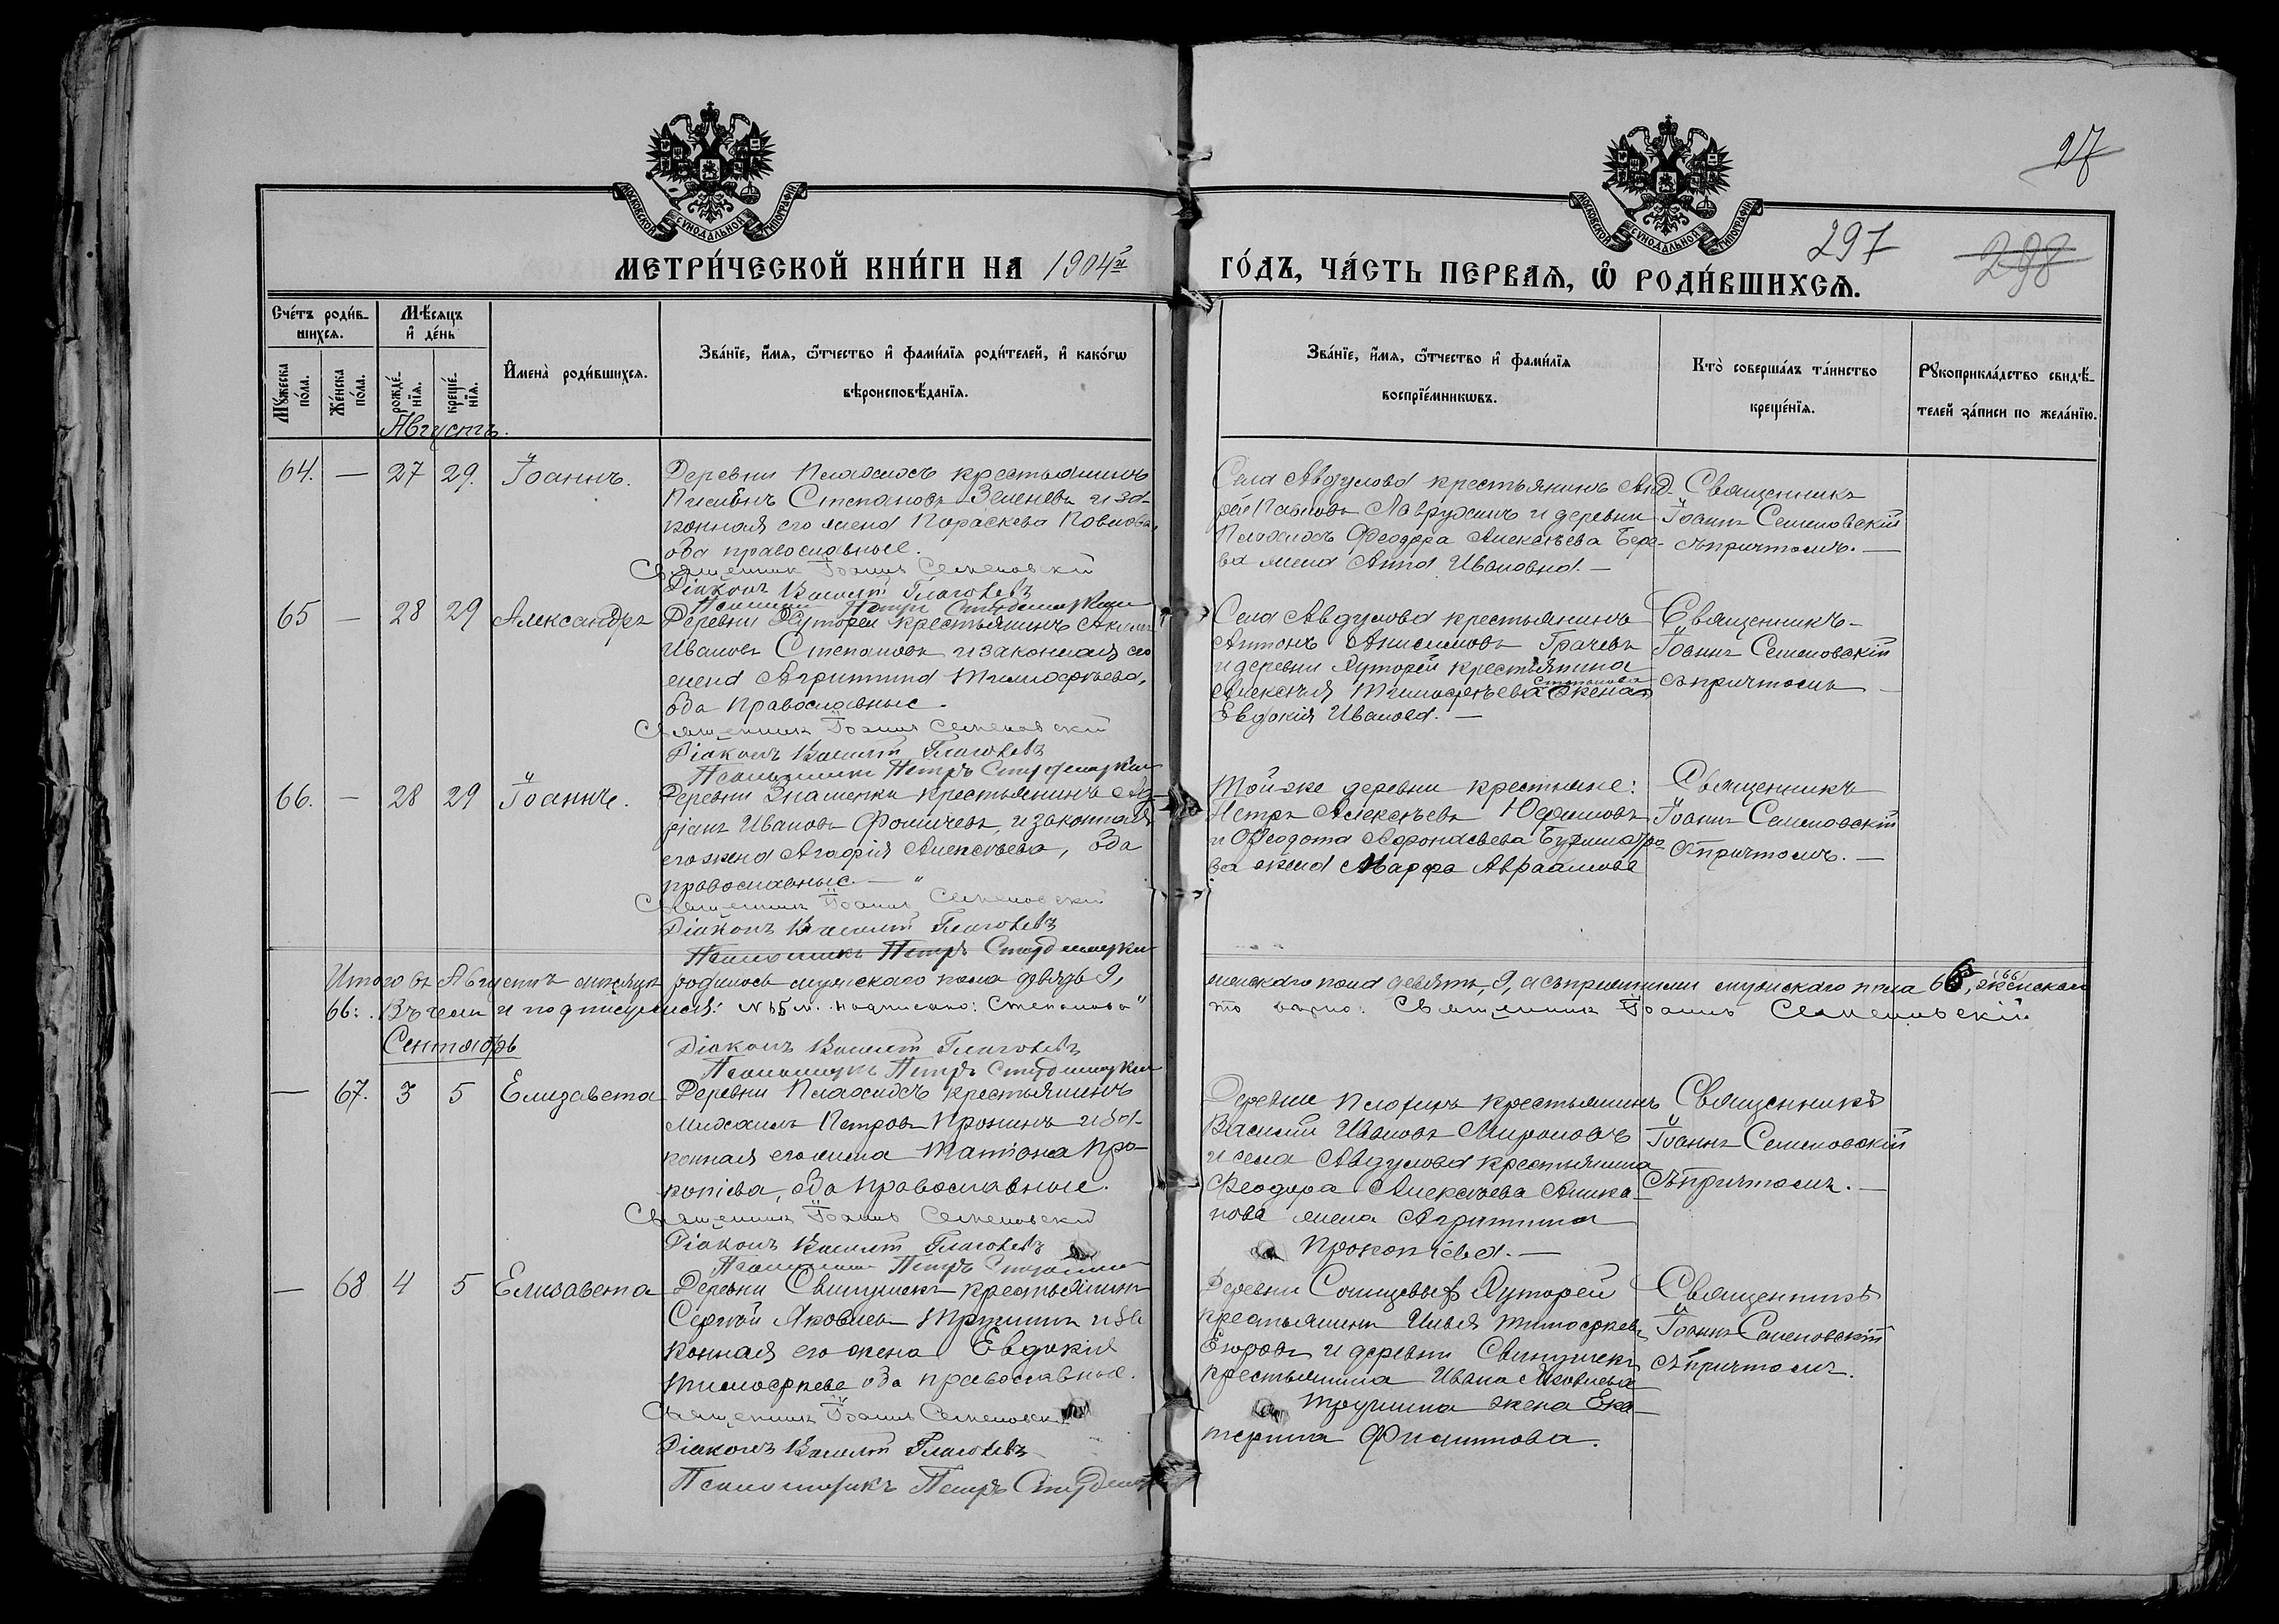 27
МОСКОВСКОЙ СѴНОДАЛЬНОЙ ТИПОГРАФІИ
МОСКОВСКОЙ СѴНОДАЛЬНОЙ ТИПОГРАФІИ
297
298
МЕТРИ́ЧЕСКОЙ КНИ́ГИ НА 1904й
ГО́ДЪ, ЧА́СТЬ ПЕРВАѦ, Ѡ҆ РОДИ́ВШИХСѦ.
Сче́тъ роди́в-
шихсѧ.
Мꙋжеска по́ла.
Же́нска по́ла.
Мѣ́сѧцъ
и҆ де́нь
рожде́-нїѧ.
креще́-нїѧ.
И҆мена̀ роди́вшихсѧ.
Зва́нїе, и҆́мѧ, ѻ҆́тчество и҆ фами́лїѧ роди́телей, и҆ како́гѡ
вѣроисповѣ́данїѧ.
Зва́нїе, и҆́мѧ, ѻ҆́тчество и҆ фами́лїѧ
воспрїе́мникѡвъ.
Кто̀ соверша́лъ та́инство
креще́нїѧ.
Рꙋкоприкла́дство свидѣ́-
телей за́писи по жела́нїю.
Августъ.
64. — 27 29. Іоаннъ.
Деревни крестьянинъ
Степановъ и за-
конная его жена Параскева Павлова,
оба православные.
Священникъ Іоаннъ Семеновскій
Діаконъ Василій
Псаломщикъ Петръ
Села Авдулова крестьянинъ Анд-
рей Павловъ Лаврухинъ и деревни
Феодора Алексѣева
жена Анна Иванова. —
Священникъ
Іоаннъ Семеновскій
съ причтомъ. —
65 — 28 29 Александръ
Деревни Хуторей крестьянинъ
Ивановъ Степановъ и законная его
жена Агрипина Тимофѣева,
оба православные.
Священникъ Іоаннъ Семеновскій
Діаконъ Василій
Псаломщикъ Петръ
Села Авдулова крестьянинъ
Антонъ Анисимовъ Грачевъ
и деревни Хуторей крестьянина
Алексѣя Тимофѣева Степанова жена
Евдокія Иванова. —
Священникъ —
Іоаннъ Семеновскій
съ причтомъ —
66. — 28 29 Іоаннъ.
Деревни Знаменки крестьянинъ Ад-
ріанъ Ивановъ Фомичевъ, и законная
его жена Агафія Алексѣева, оба
православные. — "
Священникъ Іоаннъ Семеновскій
Діаконъ Василій
Псаломщикъ Петръ
Той-же деревни крестьяне:
Петръ Алексѣевъ Юдишовъ
и Ѳеодота Афонасьева
ва жена Марфа Авраамова
Священникъ
Іоаннъ Семеновскій
съ причтомъ. —
Итого въ Августѣ мѣсяцѣ родилось мужскаго пола девять 9,
женскаго пола девять, 9, а съ прежними мужскаго пола 66, (66) женскаго
66: . Въ чемъ и подписуемся: надписано: Степанова"
то вѣрно: Священникъ Іоаннъ Семеновскій
Сентябрь
Діаконъ Василій
Псаломщикъ Петръ
— 67. 3 5 Елизавета
Деревни крестьянинъ
Михаилъ Петровъ Пронинъ и за-
конная его жена Татіана Про-
копіева, оба православные.
Священникъ Іоаннъ Семеновскій
Діаконъ Василій
Псаломщикъ Петръ
Деревни крестьянинъ
Василій Ивановъ Мироновъ
и села Авдулова крестьянина
Феодора Алексѣева Аника-
нова жена Агрипина
Прокопіева. —
Священникъ
Іоаннъ Семеновскій
съ причтомъ. —
— 68 4 5 Елизавета
Деревни Свинушекъ крестьянинъ
Сергѣй Яковлевъ Трушинъ и за-
конная его жена Евдокія
Тимофѣева оба православные.
Священникъ Іоаннъ Семеновскій
Діаконъ Василій
Псаломщикъ Петръ
Деревни Солнцевыхъ Хуторей
крестьянинъ Илья Тимофеевъ
Егоровъ и деревни Свинушекъ
крестьянина Ивана Яковлева
Трушина жена Ека-
терина Филиппова.
Священникъ
Іоаннъ Семеновскій
съ причтомъ.